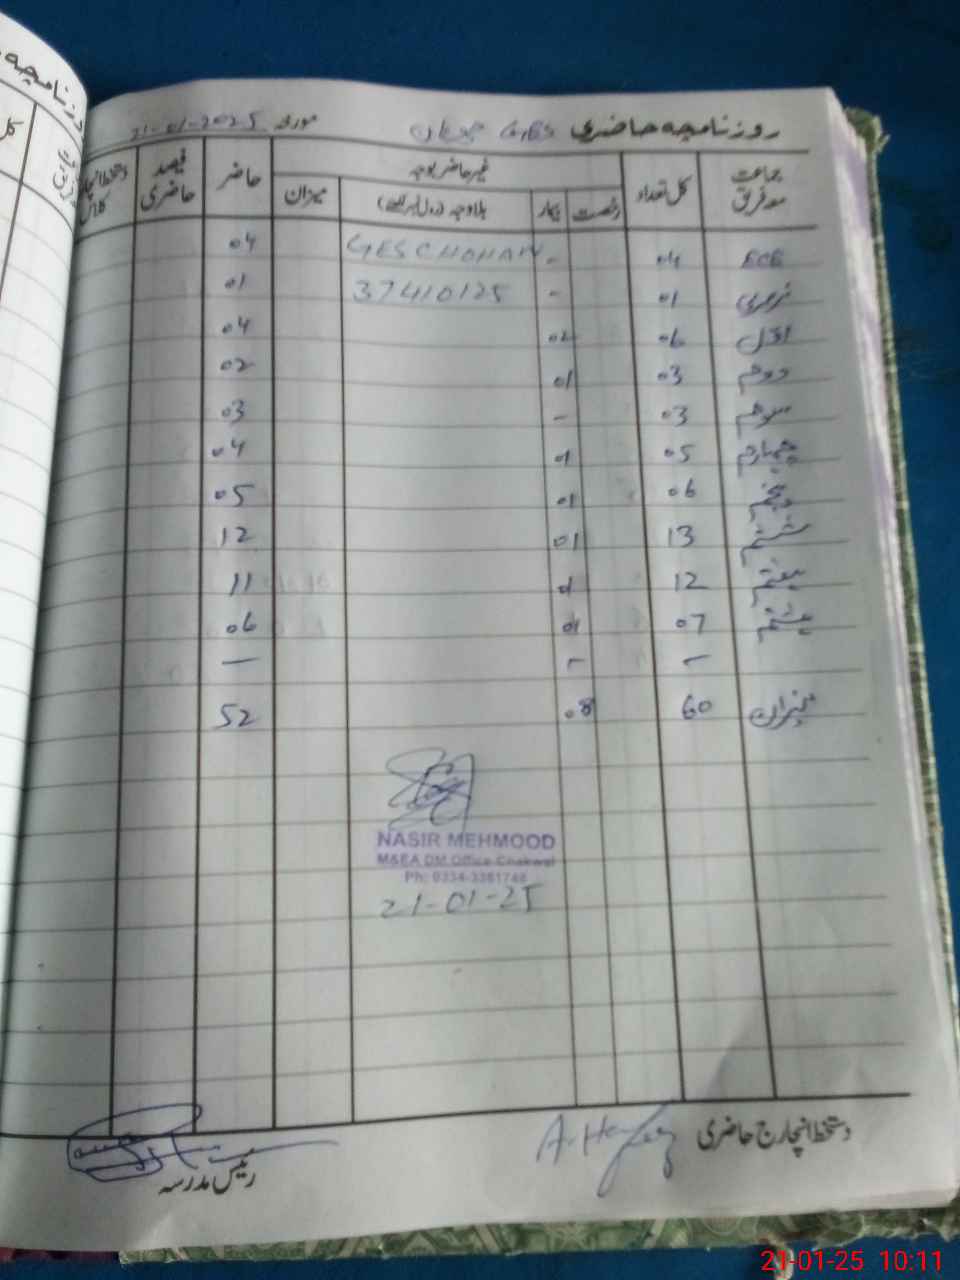 روزنامچہ حاضری GES چوہان مورخہ 21-01-2025
جماعت معہ فریق کل تعداد غیر حاضر بوجہ حاضر فیصد حاضری دستخط انچارج کلاس
رخصت بیمار بلاوجہ (رول نمبر لکھیے) میزان
ECE 04 - GES CHOHAN 04
نرسری 01 - 37410125 01
اول 06 02 04
دوم 03 01 02
سوم 03 - 03
چہارم 05 01 04
پنجم 06 01 05
ششم 13 01 12
ہفتم 12 01 11
ہشتم 07 01 06
- - -
میزان 60 08 52
NASIR MEHMOOD
M&EA DM Office Chakwal
Ph: 0334-3361748
21-01-25
دستخط انچارج حاضری
رئیس مدرسہ
21-01-25 10:11